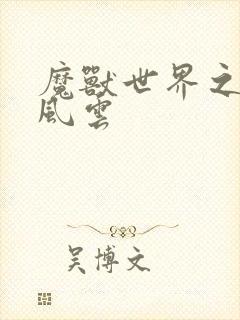 魔獸世界之
風雲
吴博文